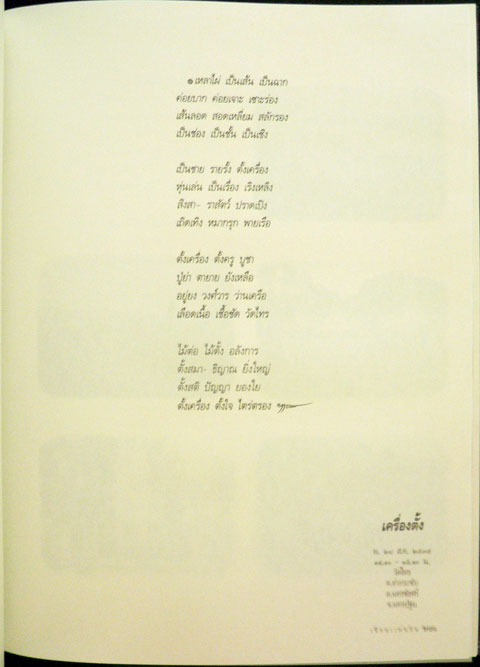 ๑ เหลาไผ่ เป็นเส้น เป็นฉาก
ค่อยบาก ค่อยเจาะ เซาะร่อง
เส้นลอด สอดเหลี่ยม สลักรอง
เป็นช่อง เป็นชั้น เป็นเชิง
เป็นชาย รายรั้ง ตั้งเครื่อง
หุ่นเล่น เป็นเรื่อง เริงเหลิง
สิงสา- ราสัตว์ ปราดเปิง
เถิดเทิง หมากรุก พายเรือ
ตั้งเครื่อง ตั้งครู บูชา
ปู่ย่า ตายาย ยังเหลือ
อยู่ยง วงศ์วาร ว่านเครือ
เลือดเนื้อ เชื้อชัด วัดไทร
ไม้ต่อ ไม้ตั้ง อลังการ
ตั้งสมา- ธิญาณ ยิ่งใหญ่
ตั้งสติ ปัญญา ยองใย
ตั้งเครื่อง ตั้งใจ ไตร่ตรอง
เครื่องตั้ง
วัดไทร
อ.นครชัยศรี
จ.นครปฐม